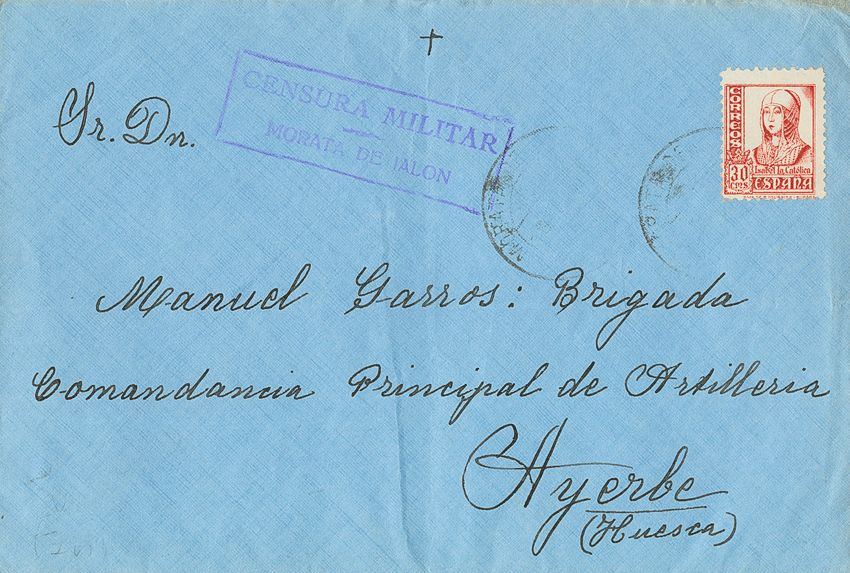 Sr. Dn.
CENSURA MILITAR
MORATA DE JALON
CORREOS
30
CTS.
Isabel la Católica
ESPAÑA
MORATA
Manuel Garros: Brigada
Comandancia Principal de Artilleria
Ayerbe
(Huesca)